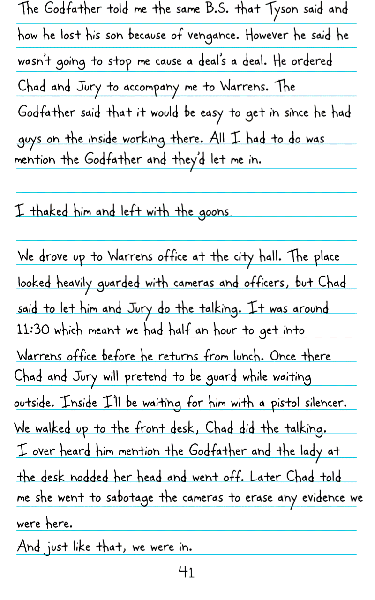 The Godfather told me the same B.S. that Tyson said and
how he lost his son because of vengance. However he said he
wasn't going to stop me cause a deal's a deal. He ordered
Chad and Jury to accompany me to Warrens. The
Godfather said that it would be easy to get in since he had
guys on the inside working there. All I had to do was
mention the Godfather and they'd let me in.
I thaked him and left with the goons
We drove up to Warrens office at the city hall. The place
looked heavily guarded with cameras and officers, but Chad
said to let him and Jury do the talking. It was around
11:30 which meant we had half an hour to get into
Warrens office before he returns from lunch. Once there
Chad and Jury will pretend to be guard while waiting
outside. Inside I'll be waiting for him with a pistol silencer.
We walked up to the front desk, Chad did the talking.
I over heard him mention the Godfather and the lady at
the desk nodded her head and went off. Later Chad told
me she went to sabotage the cameras to erase any evidence we
were here.
And just like that, we were in.
41